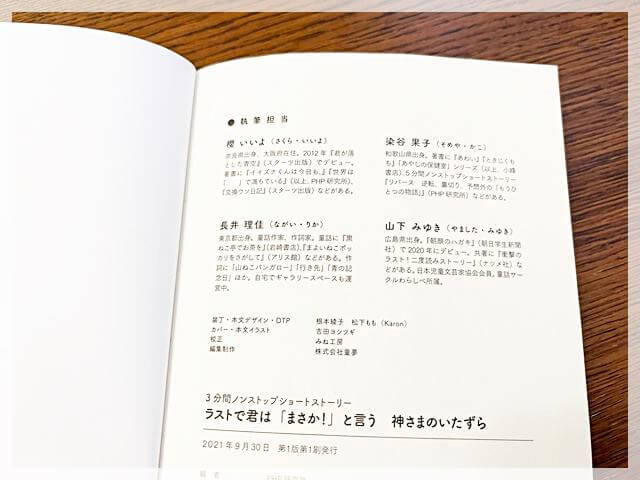 ● 執筆担当
櫻 いいよ（さくら・いいよ）
奈良県出身、大阪府在住。2012年『君が落
とした青空』（スターツ出版）でデビュー。
著書に『イイズナくんは今日も、』『世界は
「　　」で満ちている』（以上、PHP研究所）、
『交換ウソ日記』（スターツ出版）などがある。
染谷 果子（そめや・かこ）
和歌山県出身。著書に『あわい』『ときじくも
も』『あやしの保健室』シリーズ（以上、小峰
書店）、5分間ノンストップショートストーリー
『リバース　逆転、裏切り、予想外の「もうひ
とつの物語」』（PHP研究所）などがある。
長井 理佳（ながい・りか）
東京都出身。童話作家、作詞家。童話に『黒
ねこ亭でお茶を』（岩崎書店）、『まよいねこポッ
カリをさがして』（アリス館）などがある。作
詞に「山ねこバンガロー」「行き先」「青の記
念日」ほか。自宅でギャラリースペースも運
営中。
山下 みゆき（やました・みゆき）
広島県出身。『朝顔のハガキ』（朝日学生新聞
社）で2020年にデビュー。共著に『衝撃の
ラスト!二度読みストーリー』（ナツメ社）な
どがある。日本児童文芸家協会会員。童話サー
クルわらしべ所属。
装丁・本文デザイン・DTP　根本綾子　松下もも（Karon）
カバー・本文イラスト　吉田ヨシツギ
校正　みね工房
編集制作　株式会社童夢
3分間ノンストップショートストーリー
ラストで君は「まさか!」と言う　神さまのいたずら
2021年9月30日　第1版第1刷発行
編者